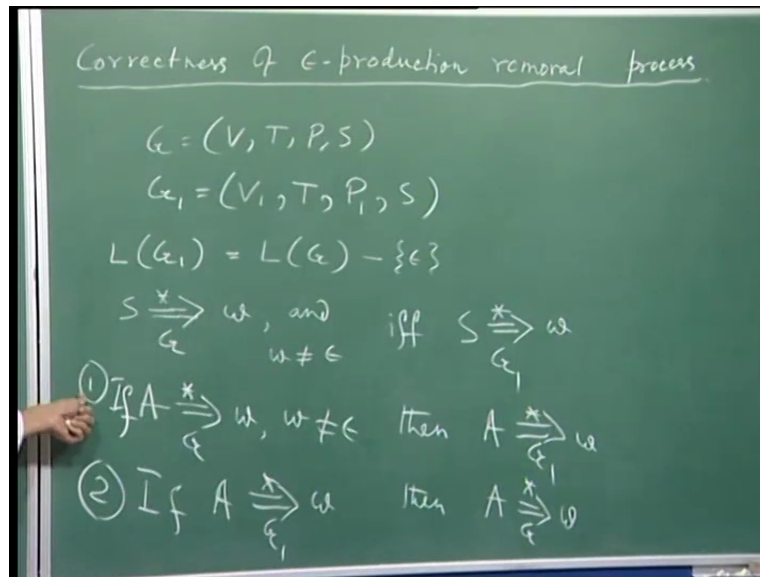 Correctness of ε-production removal process.
G = (V, T, P, S)
G₁ = (V₁, T, P₁, S)
L(G₁) = L(G) - {ε}
S ⇒*_G w, and w ≠ ε iff S ⇒*_G₁ w
① If A ⇒*_G w, w ≠ ε then A ⇒*_G₁ w
② If A ⇒*_G₁ w then A ⇒*_G w